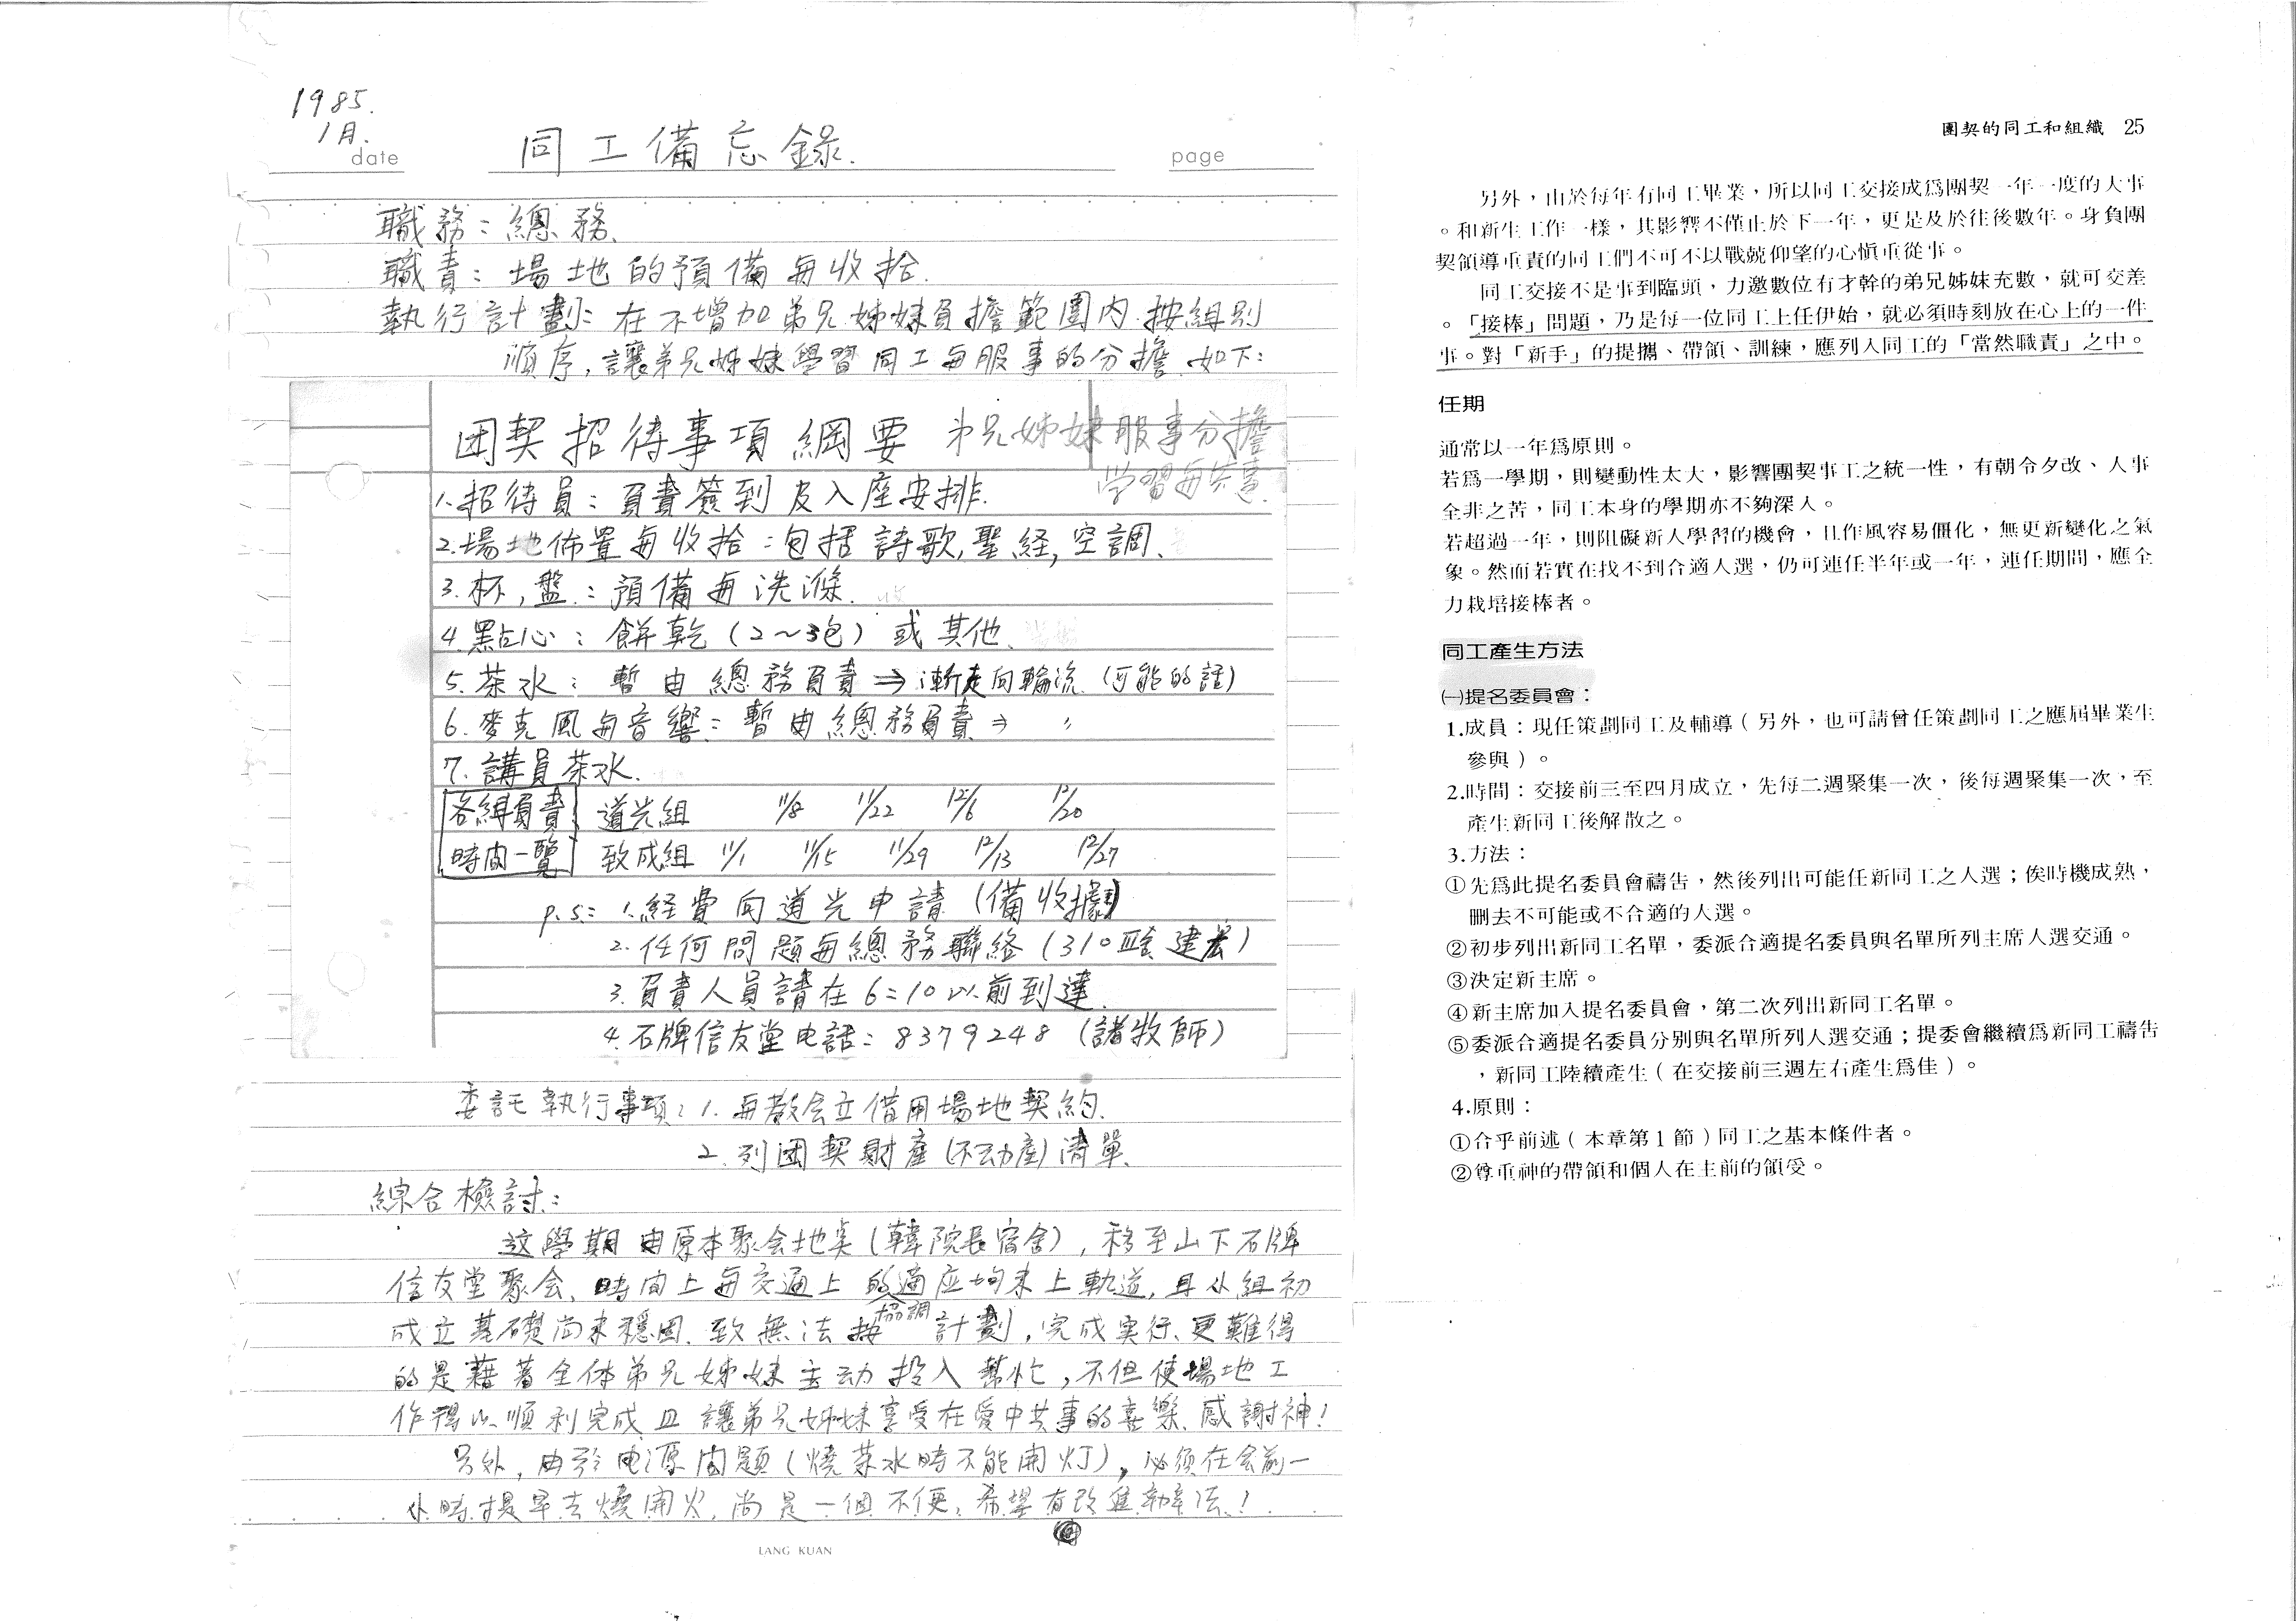 1985.
1月.
date
同工備忘錄.
page
職務：總務.
職責：場地的預備與收拾.
執行計劃：在不增加弟兄姊妹負擔範圍內.按組別
順序,讓弟兄姊妹學習同工與服事的分擔.如下：
团契招待事項綱要 弟兄姊妹服事分擔
学習與共事.
1.招待員：負責簽到及入座安排.
2.場地佈置與收拾：包括詩歌,聖経,空調、
3.杯,盤：預備與洗滌.
4.點心：餅乾(2～3包)或其他.
5.茶水：暫由總務負責⇒漸走向輪流(可能的話)
6.麥克風與音響：暫由總務負責⇒ 〃
7.講員茶水.
各組負責 道光組 11/8 11/22 12/6 12/20
時間一覽 致成組 11/1 11/15 11/29 12/13 12/27
p.s： 1.経費向道光申請(備收據)
2.任何問題與總務聯絡(310 建宏)
3.負責人員請在6:10以前到達.
4.石牌信友堂电話：8379248 (諸牧師)
委託執行事項：1.與教会立借用場地契約.
2.列团契財產(不动產)清單.
綜合檢討：
这學期由原本聚会地點(韓院長宿舍),移至山下石牌
信友堂聚会、時间上與交通上的適应均未上軌道,且小組初
成立基礎尚未穩固.致無法按協調計劃,完成実行、更難得
的是藉著全体弟兄姊妹主动投入幫忙,不但使場地工
作得以順利完成且讓弟兄姊妹享受在愛中共事的喜樂、感謝神!
另外,由於电源问題(燒茶水時不能開灯),必須在会前一
小時提早去燒開水,尚是一個不便,希望有改進辦法!
LANG KUAN
團契的同工和組織 25
另外，由於每年有同工畢業，所以同工交接成爲團契一年一度的大事
。和新生工作一樣，其影響不僅止於下一年，更是及於往後數年。身負團
契領導重責的同工們不可不以戰兢仰望的心愼重從事。
同工交接不是事到臨頭，力邀數位有才幹的弟兄姊妹充數，就可交差
。「接棒」問題，乃是每一位同工上任伊始，就必須時刻放在心上的一件
事。對「新手」的提攜、帶領、訓練，應列入同工的「當然職責」之中。
任期
通常以一年爲原則。
若爲一學期，則變動性太大，影響團契事工之統一性，有朝令夕改、人事
全非之苦，同工本身的學期亦不夠深入。
若超過一年，則阻礙新人學習的機會，且作風容易僵化，無更新變化之氣
象。然而若實在找不到合適人選，仍可連任半年或一年，連任期間，應全
力栽培接棒者。
同工產生方法
㈠提名委員會：
1.成員：現任策劃同工及輔導（另外，也可請曾任策劃同工之應屆畢業生
參與）。
2.時間：交接前三至四月成立，先每二週聚集一次，後每週聚集一次，至
產生新同工後解散之。
3.方法：
①先爲此提名委員會禱告，然後列出可能任新同工之人選；俟時機成熟，
刪去不可能或不合適的人選。
②初步列出新同工名單，委派合適提名委員與名單所列主席人選交通。
③決定新主席。
④新主席加入提名委員會，第二次列出新同工名單。
⑤委派合適提名委員分別與名單所列人選交通；提委會繼續爲新同工禱告
，新同工陸續產生（在交接前三週左右產生爲佳）。
4.原則：
①合乎前述（本章第1節）同工之基本條件者。
②尊重神的帶領和個人在主前的領受。